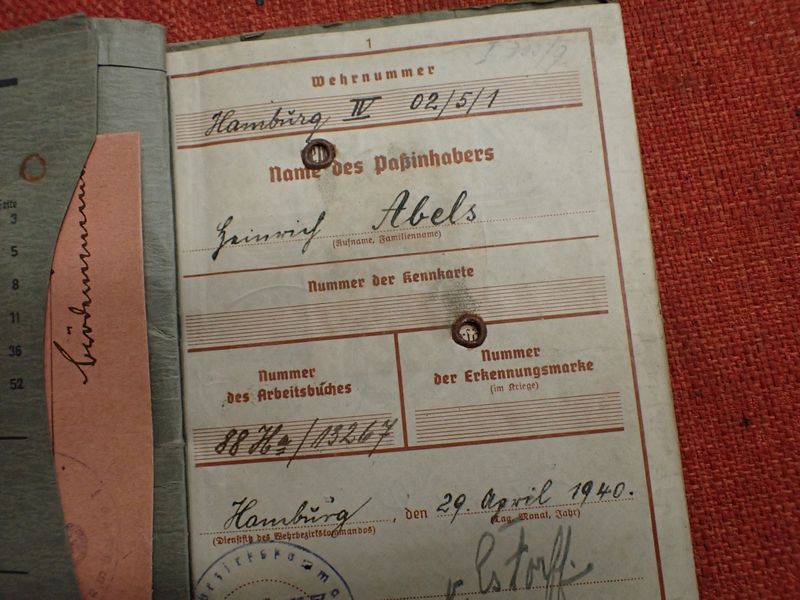 1
Wehrnummer
Hamburg IV 02/5/1
Name des Paßinhabers
Heinrich Abels
(Rufname, Familienname)
Nummer der Kennkarte
Nummer
des Arbeitsbuches
88 Ha/13267
Nummer
der Erkennungsmarke
(im Kriege)
Hamburg, den 29. April 1940.
(Dienstsitz des Wehrbezirkskommandos) (Tag, Monat, Jahr)
v. Estorff.
Seite
3
5
8
11
36
52